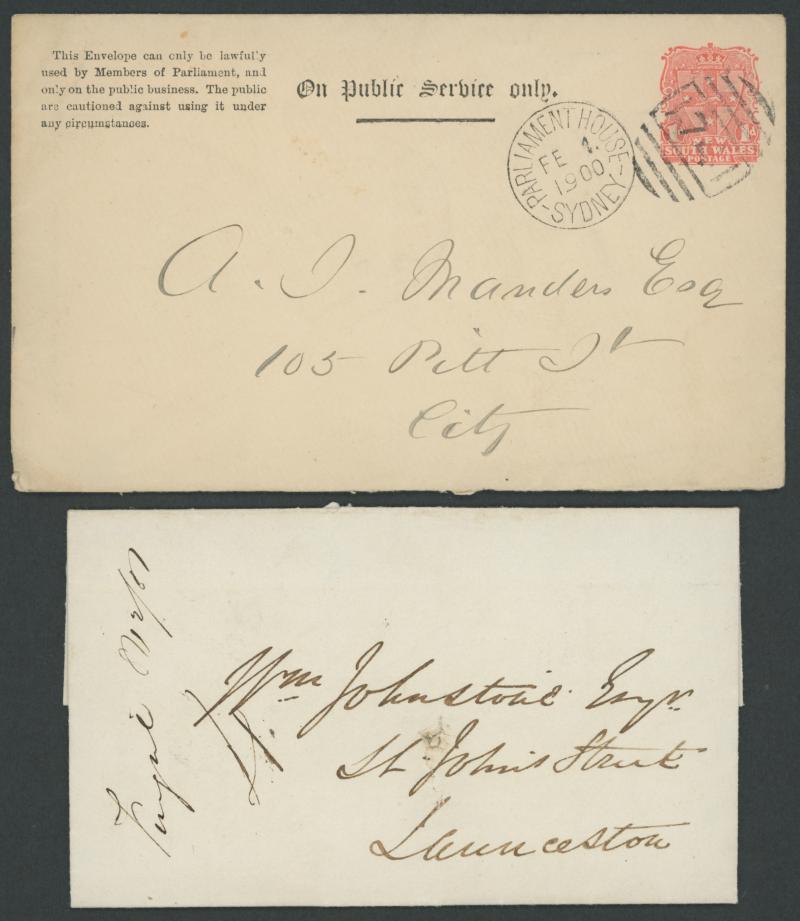 This Envelope can only be lawfully
used by Members of Parliament, and
only on the public business. The public
are cautioned against using it under
any circumstances.
On Public Service only.
PARLIAMENT HOUSE
FE 1
1900
SYDNEY
1d
NEW
SOUTH WALES
POSTAGE
Manders Esq
105 Pitt St
City
Wm Johnstone Esqr
St Johns Street
Launceston